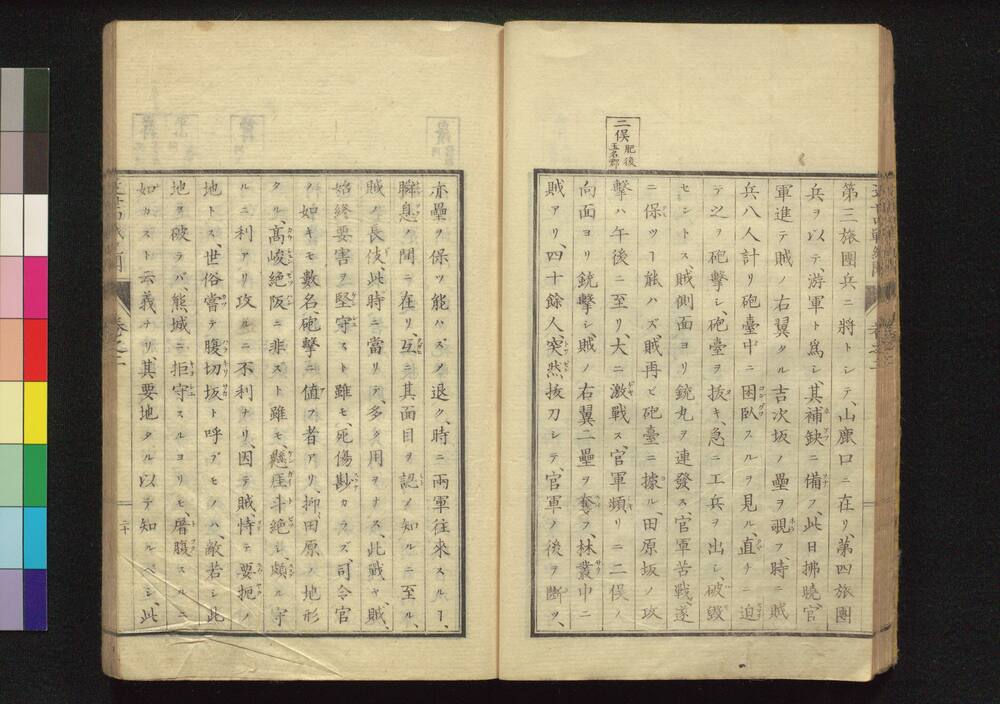 二俣 肥後玉名郡
第三旅團兵ニ將トシテ、山鹿口ニ在リ、第四旅團
兵ヲ以テ、游軍ト爲シ、其補缺ニ備フ、此日拂曉、官
軍進テ賊ノ右翼タル吉次坂ノ壘ヲ覗フ、時ニ賊
兵八人計リ砲臺中ニ困臥スルヲ見ル、直チニ迫
テ之ヲ砲擊シ、砲臺ヲ拔キ、急ニ工兵ヲ出シ、破毀
セシトス、賊側面ヨリ銃丸ヲ連發ス、官軍苦戰、遂
ニ保ツヿ能ハズ、賊再ビ砲臺ニ據ル、田原坂ノ攻
擊ハ午後ニ至リ、大ニ激戰ス、官軍頻リニ二俣ノ
向面ヨリ銃擊シ、賊ノ右翼二壘ヲ奪フ、林叢中ニ
賊アリ、四十餘人、突然拔刀シテ、官軍ノ後ヲ斷ツ、
亦壘ヲ保ツ能ハズノ退ク、時ニ兩軍往來スルヿ、
瞬息ノ間ニ在リ、互ニ其面目ヲ認メ知ルニ至ル、
賊ノ長伎、此時ニ當リテ、多ク用ヲナス、此戰ヤ賊、
始終要害ヲ堅守スト雖モ、死傷尠カラズ、司令官
ノ如キモ數名、砲擊ニ値フ者アリ、抑、田原ノ地形
タル、高峻絶阪ニ非スト雖モ、懸崖斗絶シ、頗ル守
ルニ利アリ攻ルニ不利ナリ、因テ賊、恃テ要扼ノ
地トス、世俗嘗テ腹切坂ト呼ブモノハ、敵若シ此
地ヲ破テバ、熊城ニ拒守スルヨリモ、屠腹スルニ
如カスト云義ナリ、其要地タル以テ知ルベシ、此
卷之二
二十